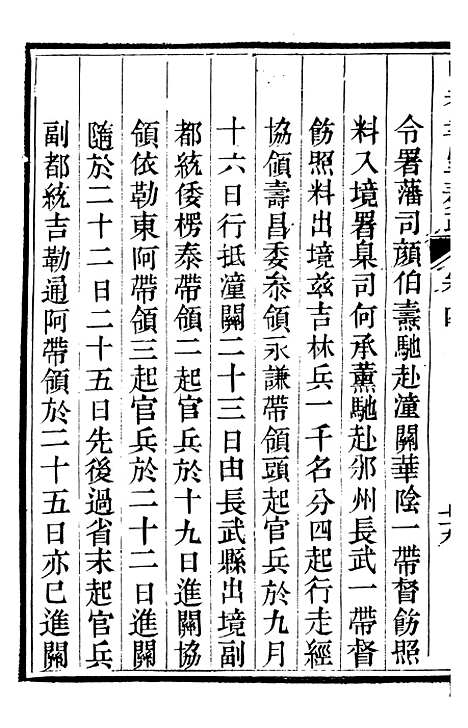 令署藩司顏伯燾馳赴潼關華陰一帶督飭照
料入境署臬司何承薰馳赴邠州長武一帶督
飭照料出境兹吉林兵一千名分四起行走經
協領壽昌委叅領永謙帶領頭起官兵於九月
十六日行抵潼關二十三日由長武縣出境副
都統倭楞泰帶領二起官兵於十九日進關協
領依勒東阿帶領三起官兵於二十二日進關
隨於二十二日二十五日先後過省末起官兵
副都統吉勒通阿帶領於二十五日亦已進關